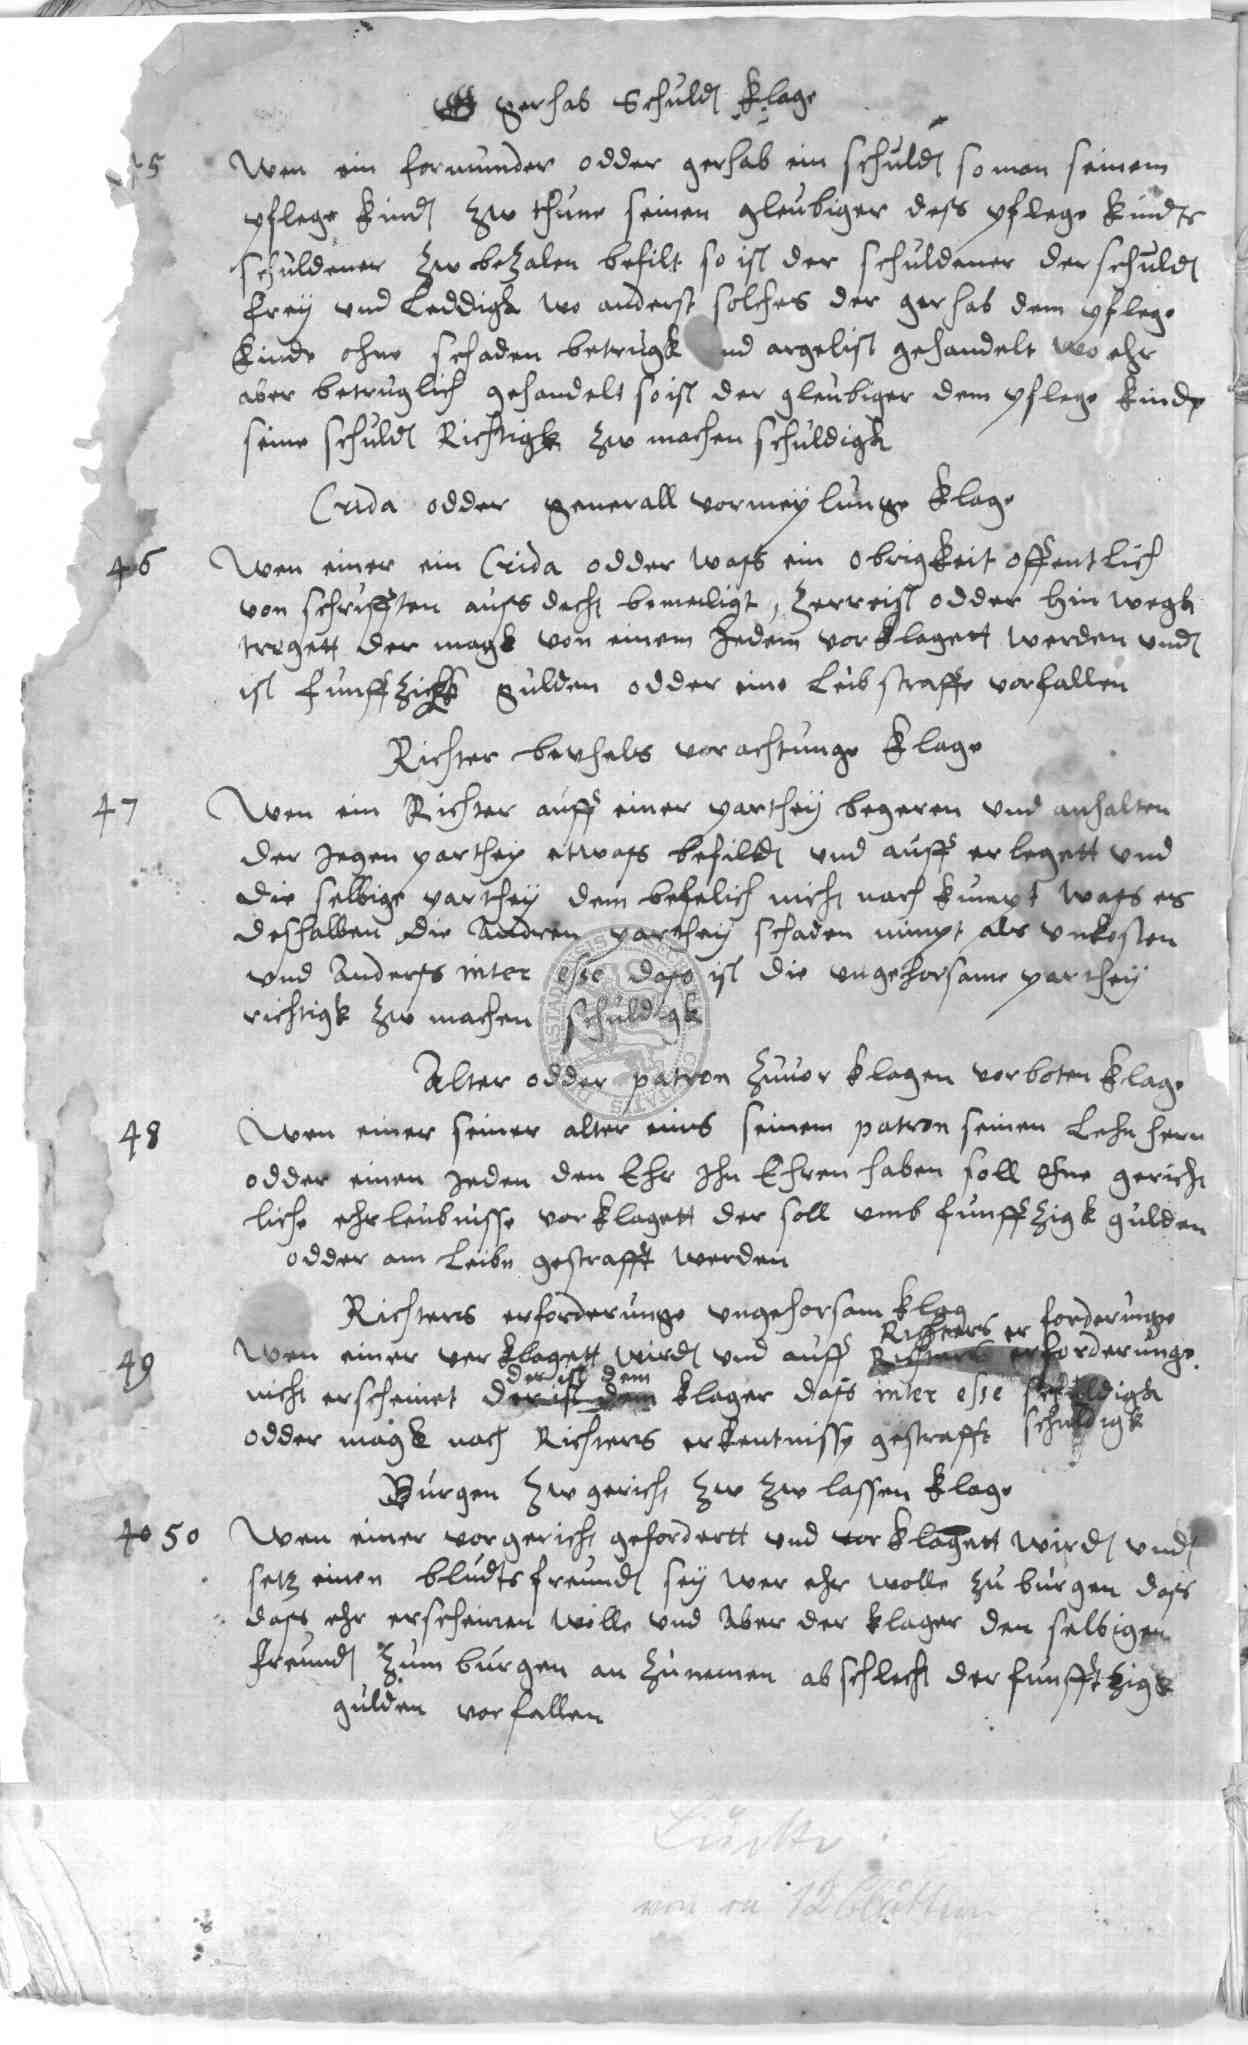 gerhab Schuldt klage
45 Wen ein formunder odder gerhab ein schuldt so man seinem
pflege kindt zw thune seinen gleubiger dess pflege kindts
schuldener zw bezalen befilt so ist der schuldener der schuldt
frey vnd Leddigk wo anderst solches der gerhab dem pflege
kinde ohne schaden betrugk vnd argelist gehandelt wo ehr
aber betruglich gehandelt so ist der gleubiger dem pflege kinde
seine schuldt Richtigk zw machen schuldigk
Crida odder generall vormeylunge klage
46 Wen einer ein Crida odder wass ein obrigkeit offentlich
von schrifften auffs decht bemeiligt, zerreist odder hin wegk
tregett der magk von einem Jedem vorklagett werden vndt
ist funffzick gulden odder eine Leibstraffe vorfallen
Richter bevhels vorachtunge klage
47 Wen ein Richter auff einer parthey begeren vnd anhalten
der Jegen parthey etwass befildt vnd auff erlegett vnd
die selbige parthey dem befelich nicht nach kumpt wass es
deshalben die Andren parthey schaden nimpt als vnkosten
vnd Anderss inter esse dass ist die vngehorsame parthey
richtigk zw machen schuldigk
Alter odder patron zuuor klagen vorboten klage
48 Wen einer seiner alter eins seinem patron seinen Lehn hern
odder einen Jeden den Ehr Ihn Ehren haben soll ohne gericht
liche ehrleubnisse vorklagett der soll vmb funffzigk gulden
odder am Leibe gestrafft werden
Richters erforderunge vngehorsam klag
Richters er forderunge
49 Wen einer verklagett wirdt vnd auff Richters erforderunge
der ist dem
nicht erscheinet der ist dem klager dass inter esse schuldigk
odder magk nach Richters erkentnisse gestrafft schuldigk
Burgen zw gericht zw zw lassen klage
40 50 Wen einer vor gericht gefordertt vnd vorklagett wirdt vndt
setz einen bludts freundt sey wer ehr wolle zu burgen dass
dass ehr erscheinen wolle vnd Aber der klager den selbigen
freundt zum burgen an zunemen abschlecht der funfftzigk
gulden vorfallen
Lücke
von ca 12 Blättern